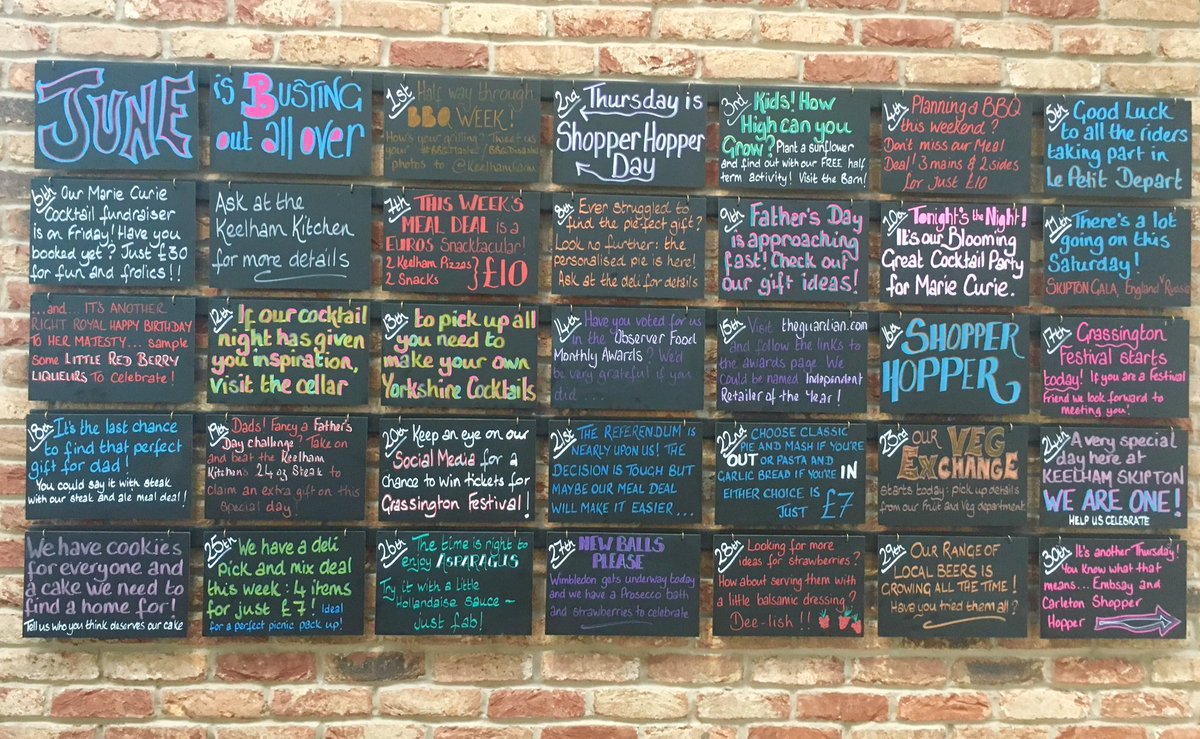 JUNE
is BUSTING
out all over
1st Half way through
BBQ WEEK!
How's your grilling? Tweet us
your #BBQMaster / BBQDisaster
photos to @Keelhamfarm
2nd Thursday is
Shopper Hopper
Day
3rd Kids! How
High can you
Grow? Plant a sunflower
and find out with our FREE half
term activity! Visit the Barn!
4th Planning a BBQ
this weekend?
Don't miss our Meal
Deal! 3 mains & 2 sides
for Just £10
5th Good Luck
to all the riders
taking part in
le Petit Depart
6th Our Marie Curie
Cocktail fundraiser
is on Friday! Have you
booked yet? Just £30
for fun and frolics!!
Ask at the
Keelham Kitchen
for more details
7th THIS WEEK'S
MEAL DEAL is a
EUROS Snacktacular!
2 Keelham Pizzas
2 Snacks } £10
8th Ever struggled to
find the pie-fect gift?
Look no further: the
personalised pie is here!
Ask at the deli for details
9th Father's Day
is approaching
fast! Check our
our gift ideas!
10th Tonight's the Night!
It's our Blooming
Great Cocktail Party
for Marie Curie.
11th There's a lot
going on this
Saturday!
SKIPTON GALA, England v Russia
...and... IT'S ANOTHER
RIGHT ROYAL HAPPY BIRTHDAY
TO HER MAJESTY... sample
some LITTLE RED BERRY
LIQUEURS To celebrate!
12th If our cocktail
night has given
you inspiration,
Visit the cellar
13th to pick up all
you need to
make your own
Yorkshire Cocktails
14th Have you voted for us
in the Observer Food
Monthly Awards? We'd
be very grateful if you
did...
15th Visit theguardian.com
and follow the links to
the awards page. We
could be named Independent
Retailer of the Year!
16th SHOPPER
HOPPER
17th Grassington
Festival starts
today! If you are a Festival
Friend we look forward to
meeting you!
18th It's the last chance
to find that perfect
gift for dad!
You could say it with steak
with our steak and ale meal deal!
19th Dads! Fancy a Father's
Day challenge? Take on
and beat the Keelham
Kitchen's 24 oz Steak to
claim an extra gift on this
special day!
20th Keep an eye on our
Social Media for a
chance to win tickets for
Grassington Festival!
21st THE REFERENDUM IS
NEARLY UPON US! THE
DECISION IS TOUGH BUT
MAYBE OUR MEAL DEAL
WILL MAKE IT EASIER...
22nd CHOOSE CLASSIC
PIE AND MASH IF YOU'RE
OUT OR PASTA AND
GARLIC BREAD IF YOU'RE IN
EITHER CHOICE IS
JUST £7
23rd OUR VEG
EXCHANGE
starts today: pick up details
from our fruit and Veg department
24th A very special
day here at
KEELHAM SKIPTON
WE ARE ONE!
HELP US CELEBRATE
We have cookies
for everyone and
a cake we need to
find a home for!
Tell us who you think deserves our cake
25th We have a deli
pick and mix deal
this week: 4 items
for just £7! Ideal
for a perfect picnic pack up!
26th The time is right to
enjoy ASPARAGUS
Try it with a little
Hollandaise sauce -
Just fab!
27th NEW BALLS
PLEASE
Wimbledon gets underway today
and we have a Prosecco bath
and strawberries to celebrate
28th Looking for more
ideas for strawberries?
How about serving them with
a little balsamic dressing?
Dee-lish!!
29th OUR RANGE OF
LOCAL BEERS IS
GROWING ALL THE TIME!
Have you tried them all?
30th It's another Thursday!
You know what that
means... Embsay and
Carleton Shopper
Hopper